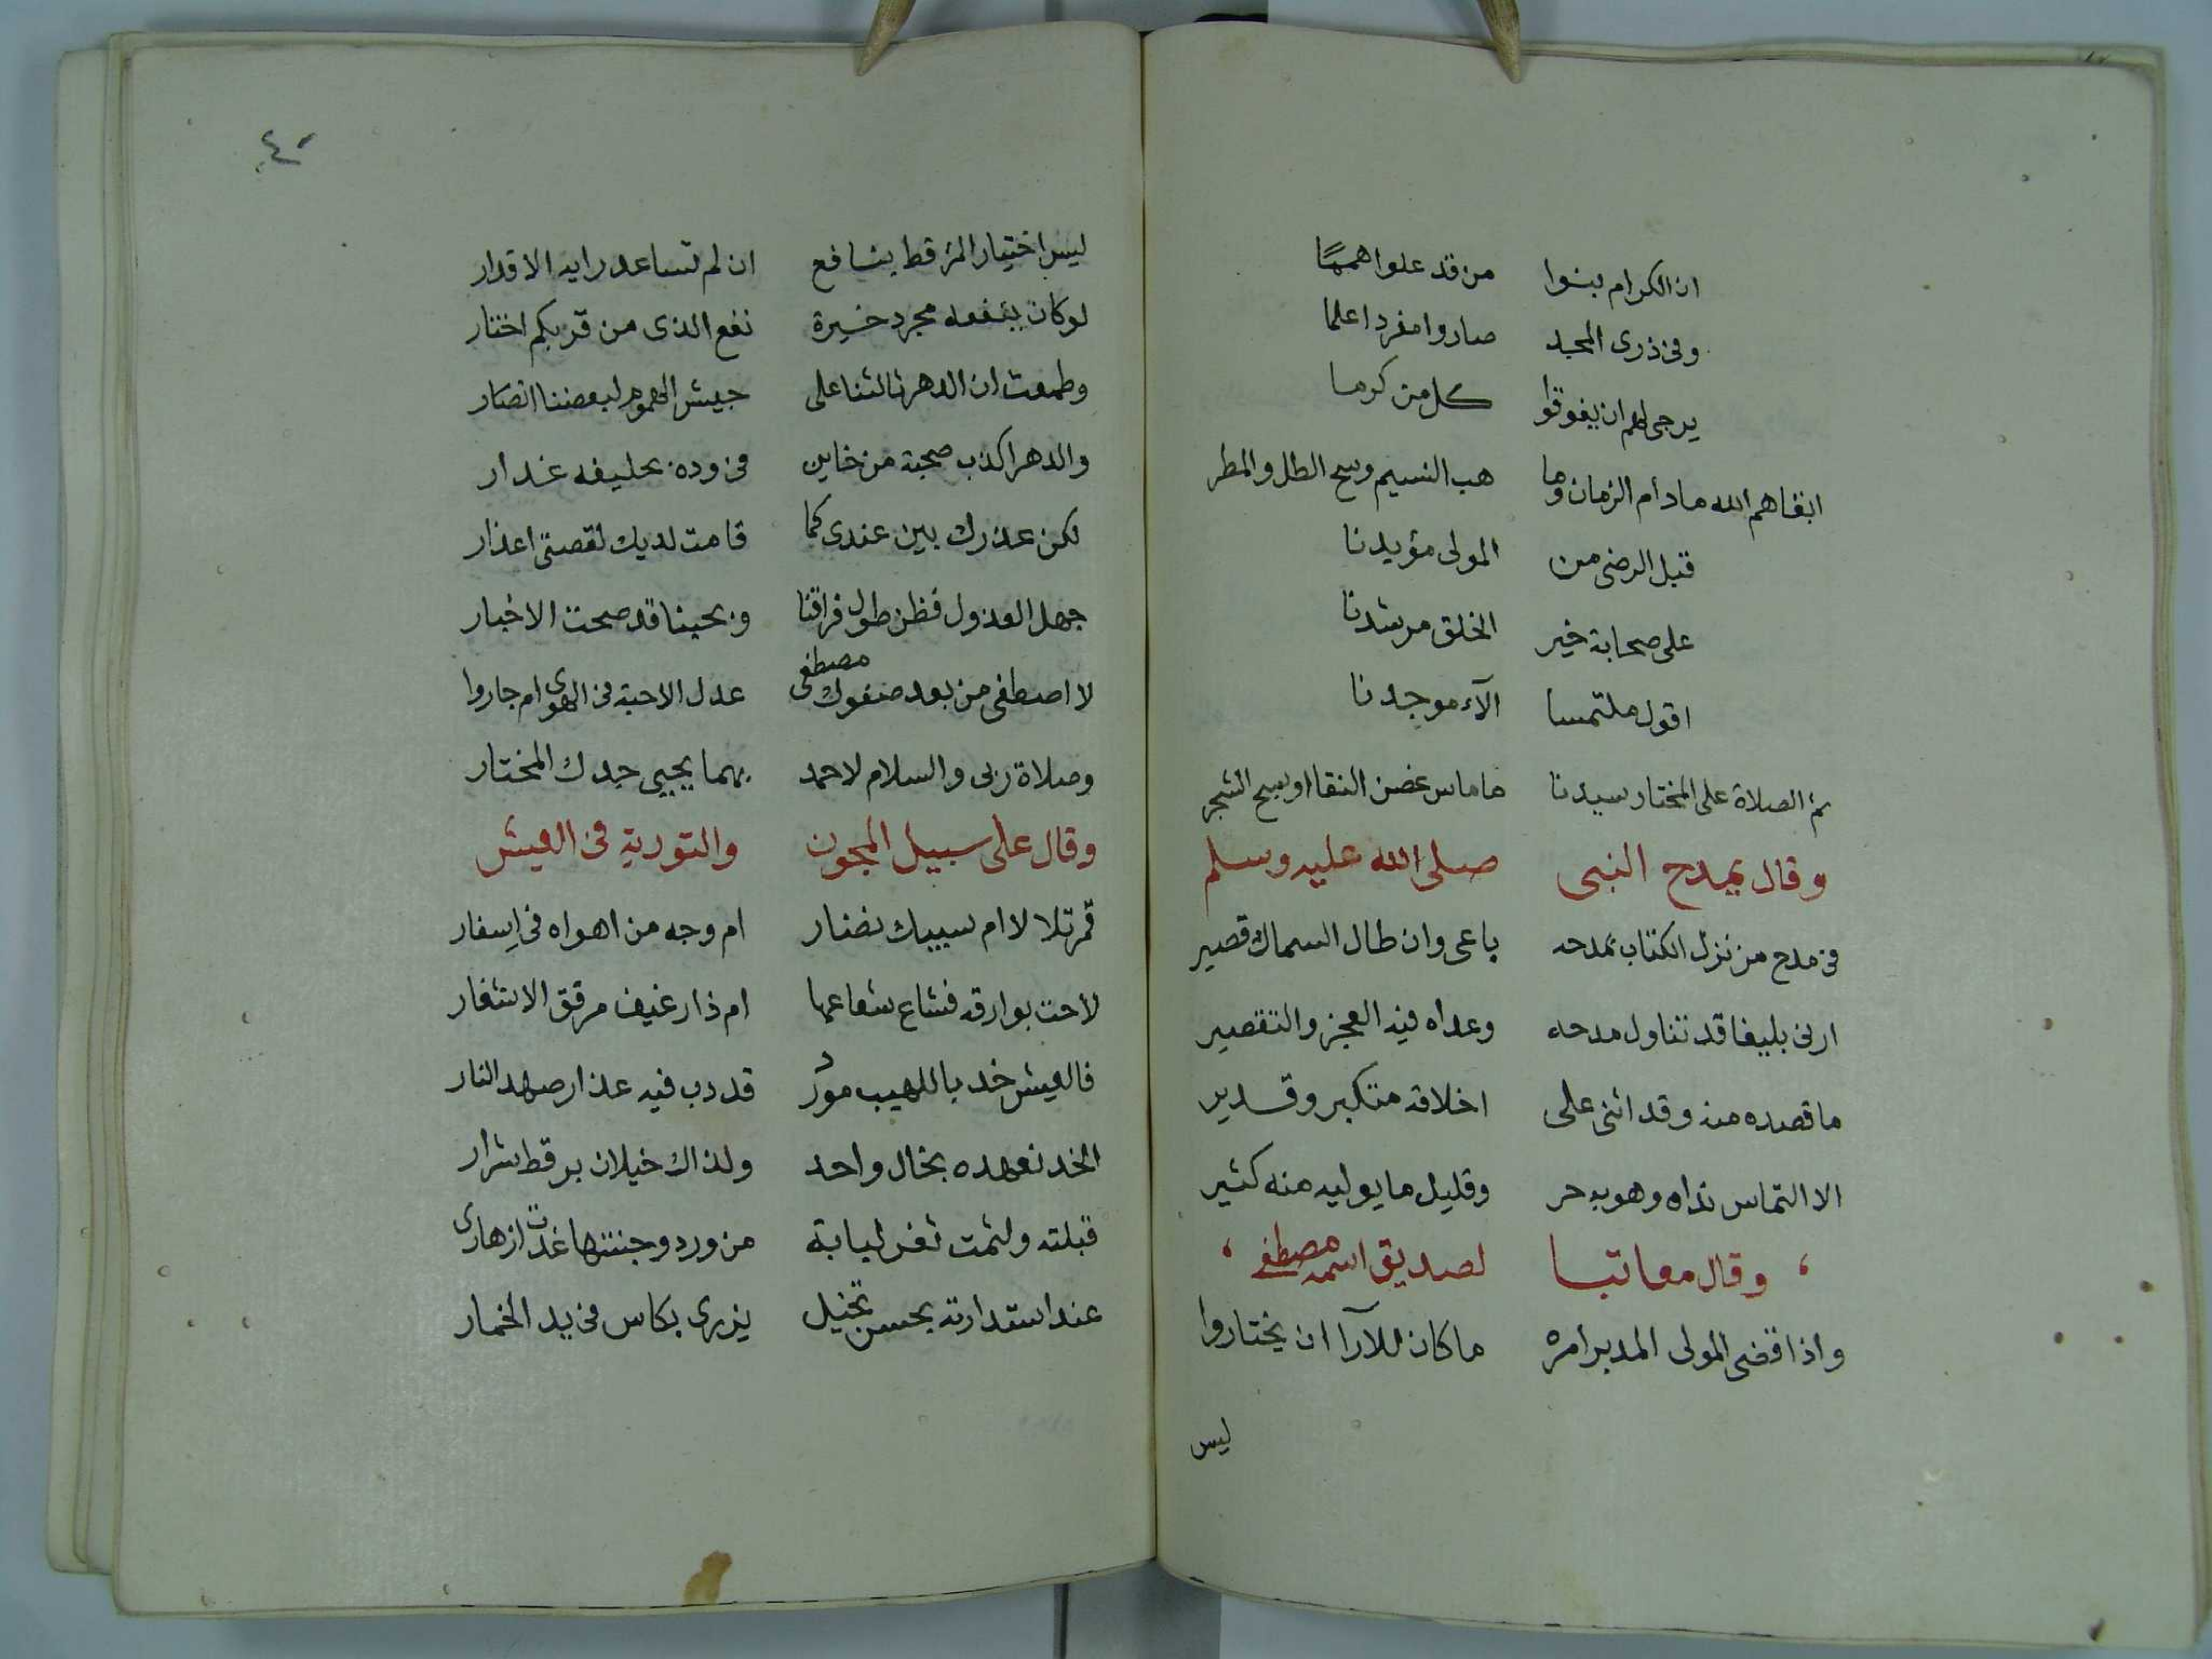 ان الكرام بنوا من قد علوا همما
وفى ذرى المجد صاروا مفردا علما
يرجى لهم ان يفوقوا كل من كرما
ابقاهم الله مادام الزمان وما هب النسيم وسح الطل والمطر
قبل الرضى من المولى مؤيدنا
على صحابة خير الخلق مرشدنا
اقول ملتمسا آلاء موجدنا
ثم الصلاة على المختار سيدنا ما ماس غصن النقا او سبح الشجر
وقال يمدح النبى صلى الله عليه وسلم
فى مدح من نزل الكتاب بمدحه باعى وان طال السماك قصير
ارنى بليغا قد تناول مدحه وعداه فيه العجز والتقصير
ما قصده منه وقد اثنى على اخلاقه متكبر وقدير
الا التماس نداه وهو به حر وقليل ما يوليه منه كثير
وقال معاتبا لصديق اسمه مصطفى
واذا قضى المولى المدبر امره ما كان للآرا ان يختاروا
ليس
٤٠
ليس اختيار المرء قط بنافع ان لم تساعد رايه الاقدار
لو كان ينفعه مجرد خيرة نفع الذى من قربكم اختار
وطمعت ان الدهر ثالثنا على جيش الهموم لبعضنا انصار
والدهر اكذب صحبة من خاين فى وده بحليفه غدار
لكن عذرك بين عندى كما قامت لديك لقصتى اعذار
جهل العذول فظن طول فراقنا وبحبنا قد صحت الاخبار
لا اصطفى من بعد صفوك مصطفى عدل الاحبة فى الهوى ام جاروا
وصلاة ربى والسلام لاحمد بهما يحيى جدك المختار
وقال على سبيل المجون والتورية فى العيش
قمر تلالا ام سبيك نضار ام وجه من اهواه فى اسفار
لاحت بوارقه فشاع شعاعها ام ذا رغيف مرقق الاشغار
فالعيش خد باللهيب مورد قد دب فيه عذار صهد النار
الخد نعهده بخال واحد ولذاك خيلان برقط شرار
قبلته ولثمت ثغر لبابة من ورد وجنتها غدت ازهارى
عند استدارته بحسن تخيل يزرى بكاس فى يد الخمار